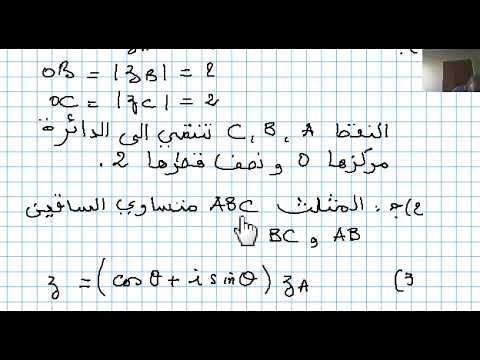 OB = |z_B| = 2
OC = |z_C| = 2
النقط A ، B ، C تنتمي الى الدائرة
مركزها O و نصف قطرها 2 .
2) ج . المثلث ABC متساوي الساقين
AB و BC
3) z = (cos θ + i sin θ) z_A